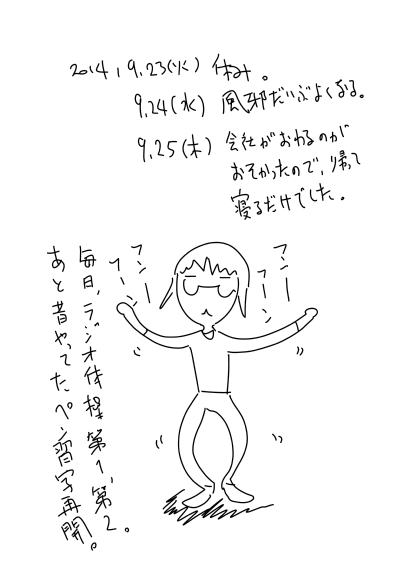 2014, 9,23(火) 休み。
9,24(水) 風邪だいぶよくなる。
9,25(木) 会社がおわるのが
おそかったので、帰って
寝るだけでした。
フンーーフーン
フンーーフーン
毎日、ラジオ体操第1、第2。
あと昔やってたペン習字再開。